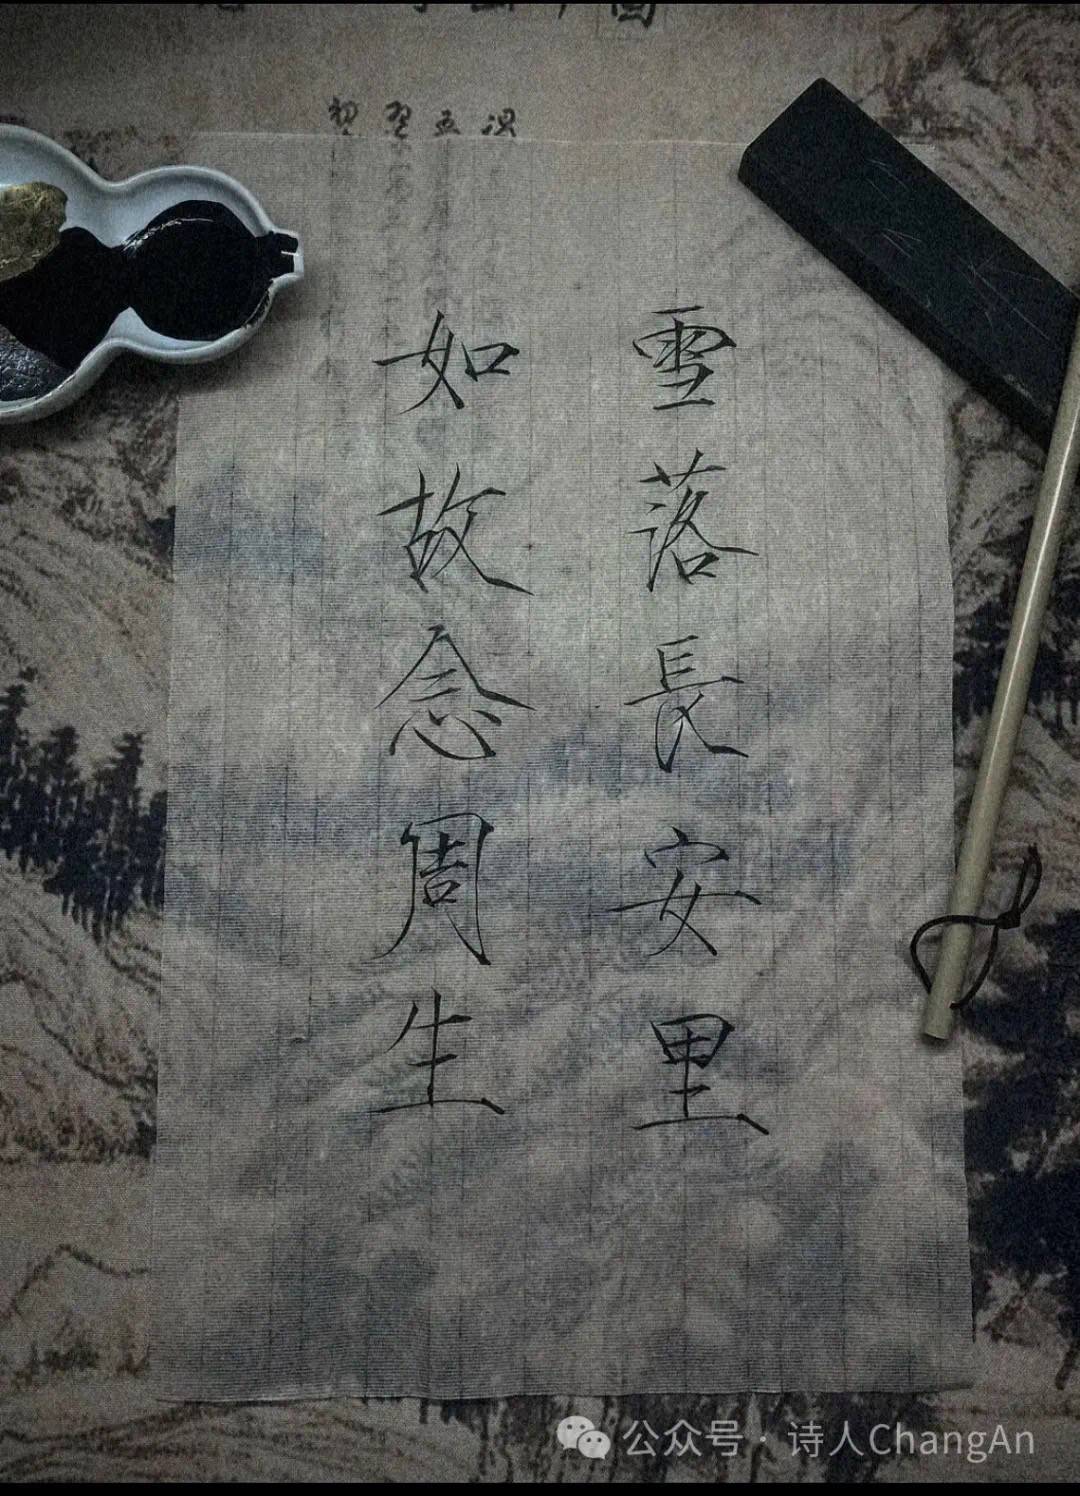 雪落長安里
如故念周生
公众号·诗人ChangAn